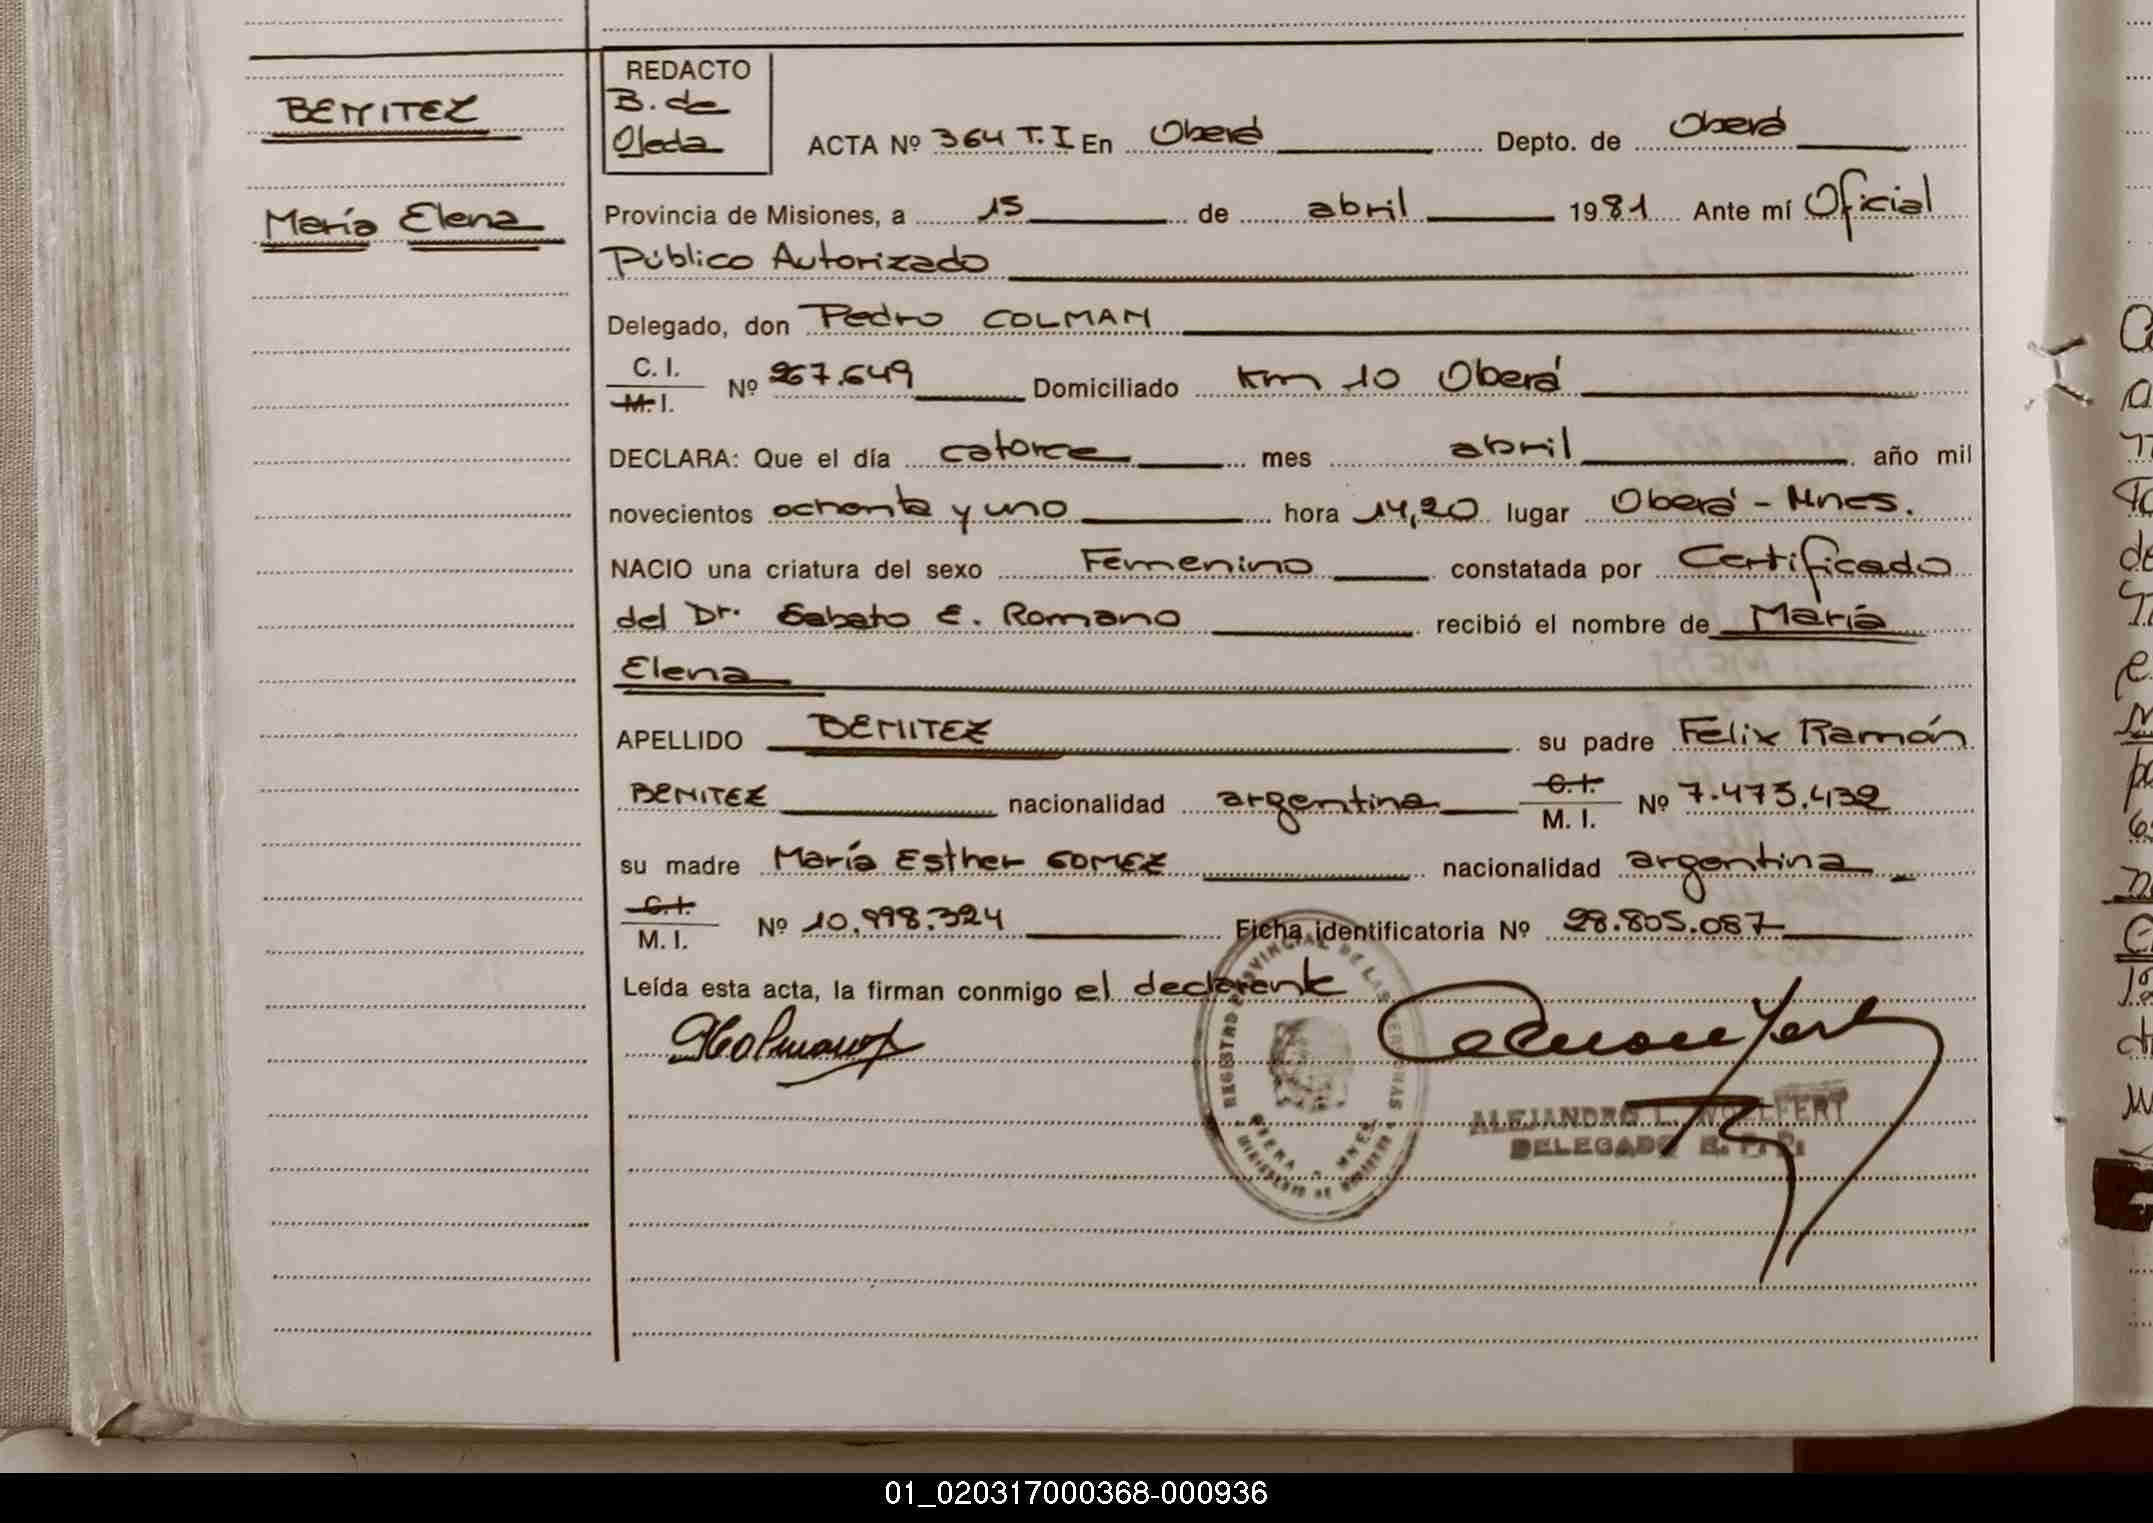 BENITEZ
María Elena
REDACTO
B. de
Ojeda
ACTA Nº 364 T.I En Oberá Depto. de Oberá
Provincia de Misiones, a 15 de abril 1981 Ante mí Oficial
Público Autorizado
Delegado, don Pedro COLMAN
C. I.
M. I. Nº 267.649 Domiciliado Km 10 Oberá
DECLARA: Que el día catorce mes abril año mil
novecientos ochenta y uno hora 14,20 lugar Oberá - Mnes.
NACIO una criatura del sexo Femenino constatada por Certificado
del Dr. Sabato E. Romano recibió el nombre de María
Elena
APELLIDO BENITEZ su padre Felix Ramón
BENITEZ nacionalidad argentina C. I.
M. I. Nº 7.475.432
su madre María Esther GOMEZ nacionalidad argentina
C. I.
M. I. Nº 10.998.324 Ficha identificatoria Nº 28.805.087
Leída esta acta, la firman conmigo el declarante
REGISTRO PROVINCIAL DE LAS PERSONAS
OBERA MNES.
ALEJANDRO L. WOLFERT
DELEGADO R. P. P.
01_020317000368-000936